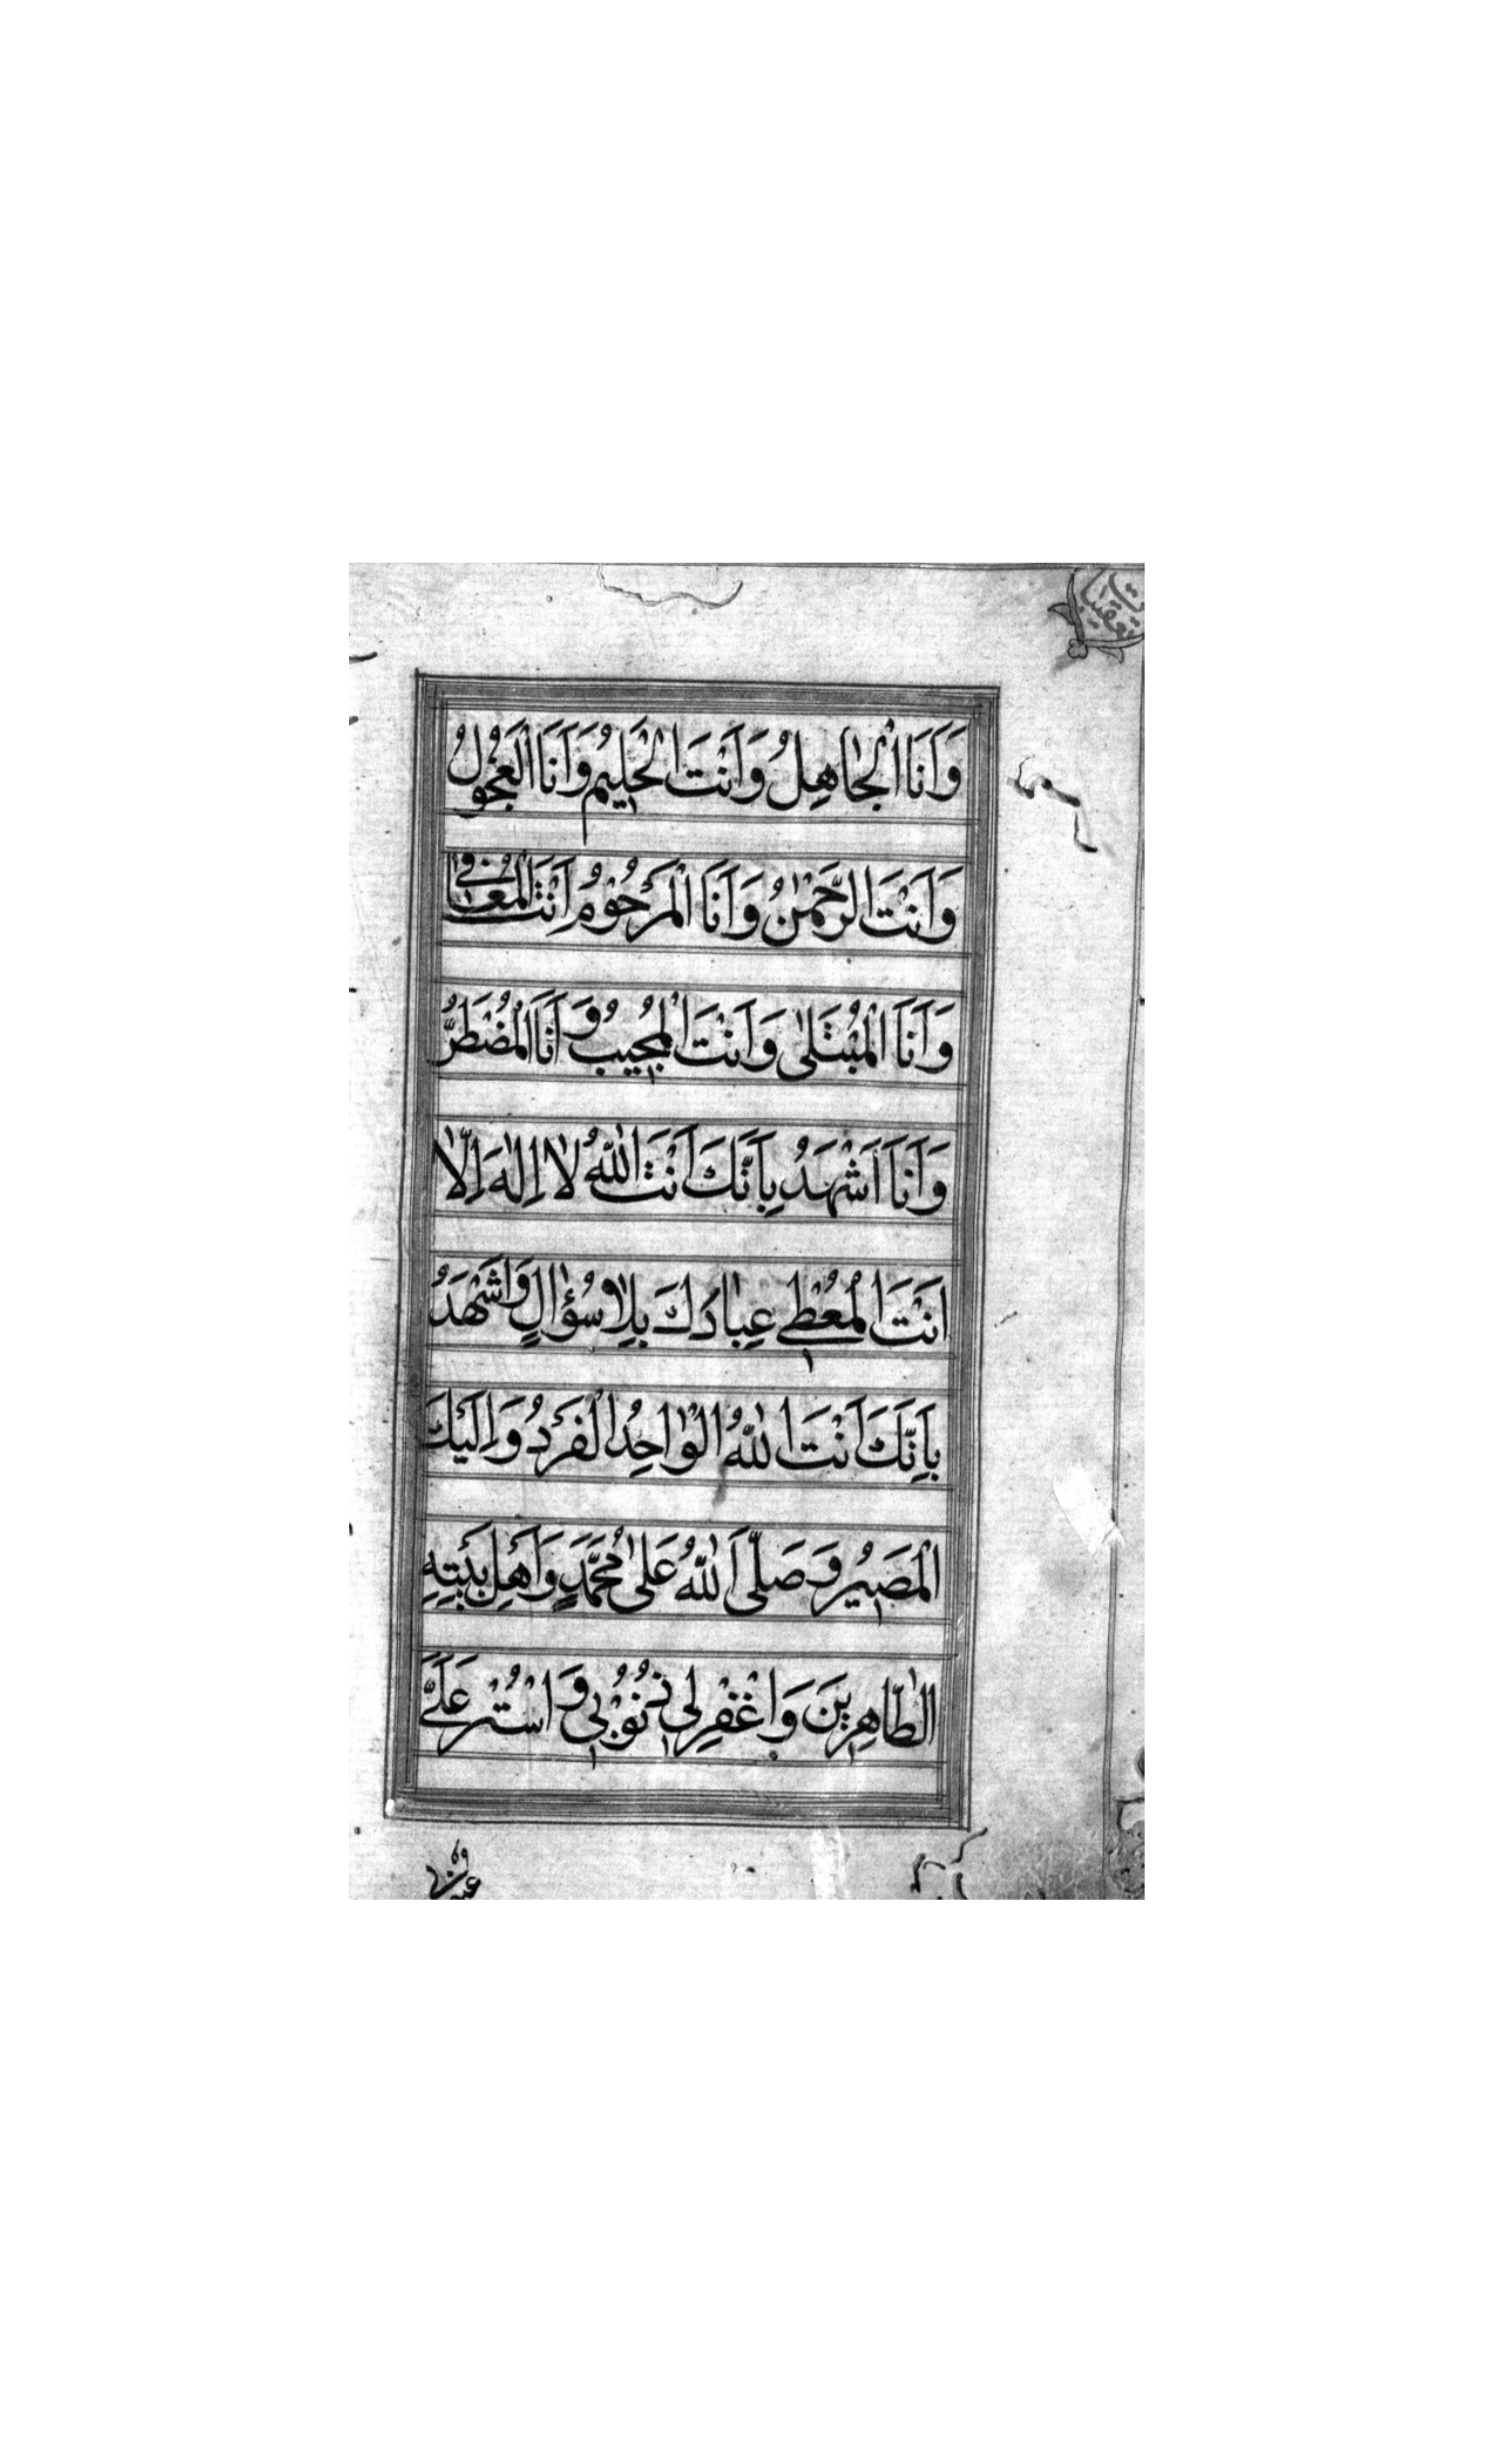 وَاَنَا الْجاهِلُ وَاَنْتَ الْحَلِيمُ وَاَنَا الْعَجُولُ
وَاَنْتَ الرَّحْمٰنُ وَاَنَا الْمَرْحُوْمُ اَنْتَ الْمُعافِى
وَاَنَا الْمُبْتَلىٰ وَاَنْتَ الْمُجِيبُ وَاَنَا الْمُضْطَرُّ
وَاَنَا اَشْهَدُ بِاَنَّكَ اَنْتَ اللّٰهُ لا اِلٰهَ اِلّا
اَنْتَ الْمُعْطِى عِبادَكَ بِلا سُؤٰالٍ وَاَشْهَدُ
بِاَنَّكَ اَنْتَ اللّٰهُ الْوٰاحِدُ الْفَرْدُ وَاِلَيْكَ
الْمَصِيْرُ وَصَلَّى اللّٰهُ عَلىٰ مُحَمَّدٍ وَاَهْلِ بَيْتِهِ
الطّاهِرِينَ وَاغْفِرْ لِى ذُنُوْبِى وَاسْتُرْ عَلَىَّ